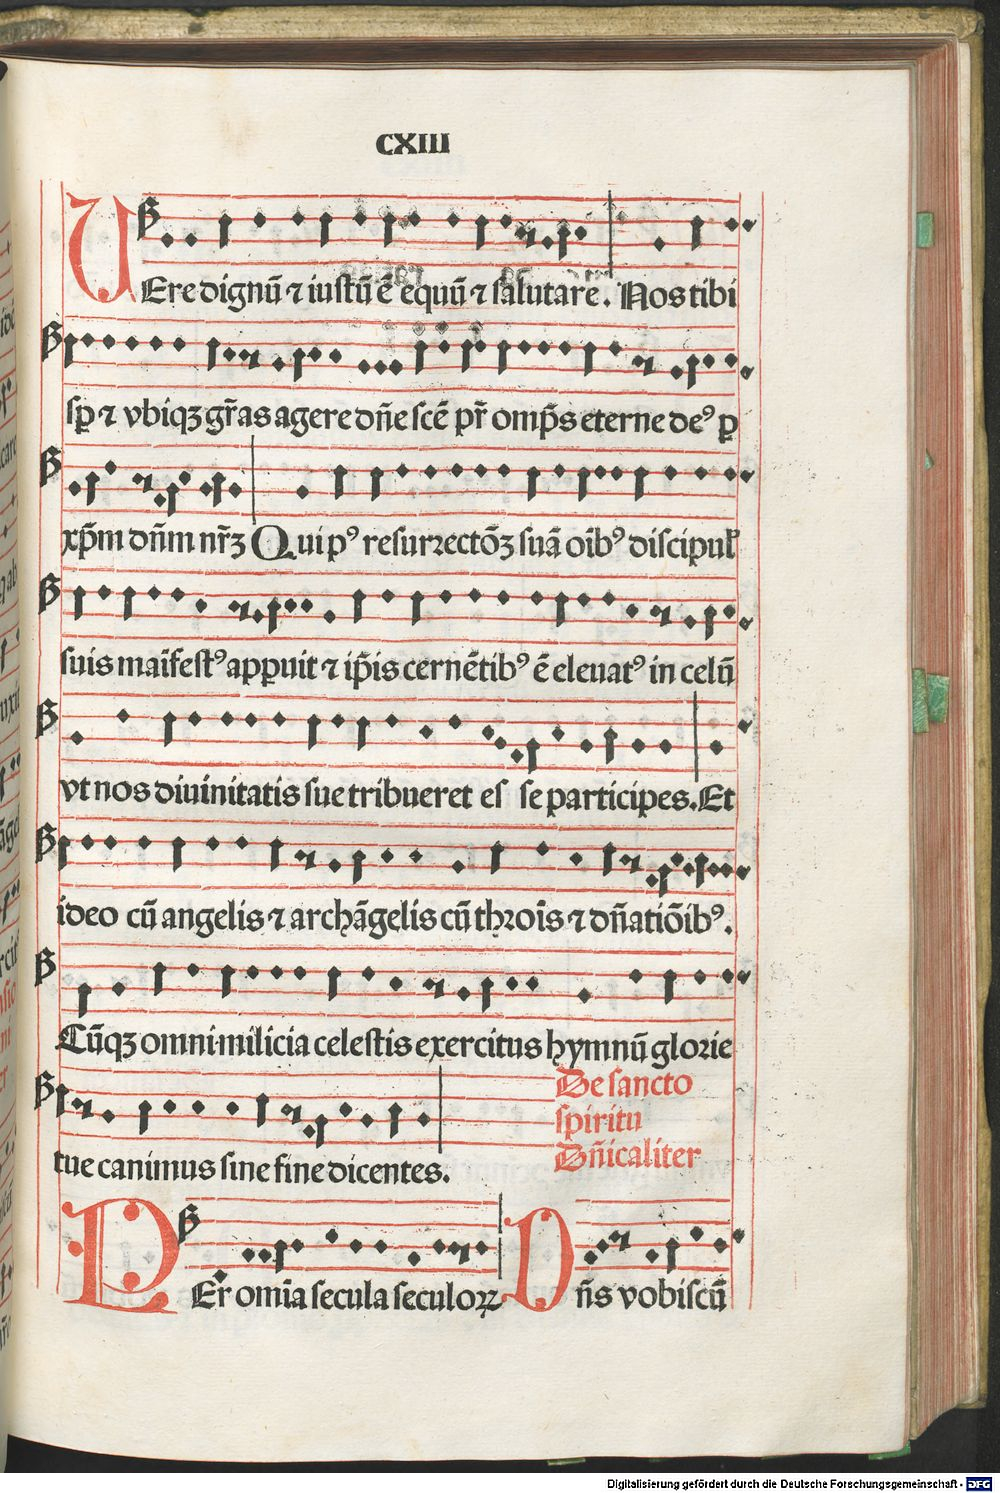 CXIII
UEre dignū ⁊ iustū ē equū ⁊ salutare. Nos tibi
sꝑ ⁊ vbiqꝫ gr̄as agere dn̄e scē pr̄ omp̄s eterne deꝰ ꝑ
xp̄m dn̄m nr̄ꝫ Qui pꝰ resurrectōꝫ suā oībꝰ discipul̓
suis maīfestꝰ apꝑuit ⁊ ip̄is cernētibꝰ ē eleuatꝰ in celū
vt nos diuinitatis sue tribueret es se participes. Et
ideo cū angelis ⁊ archāgelis cū throīs ⁊ dn̄atiōibꝰ.
Cūqꝫ omni milicia celestis exercitus hymnū glorie
tue canimus sine fine dicentes.
De sancto
spiritu
Dn̄icaliter
PEr om̄ia secula seculoꝝ Dn̄s vobiscū
Digitalisierung gefördert durch die Deutsche Forschungsgemeinschaft - DFG